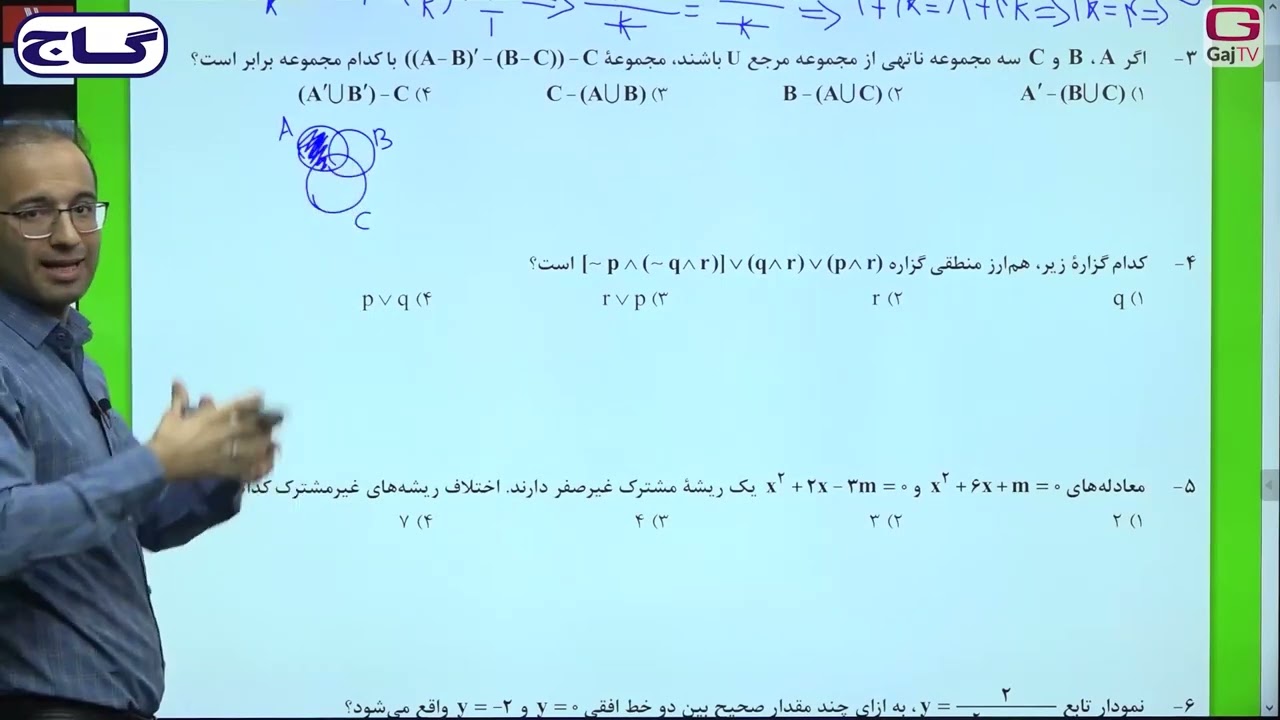 گاج
GajTV
۳- اگر A ، B و C سه مجموعه ناتهی از مجموعه مرجع U باشند، مجموعهٔ ((A-B)′-(B-C))-C با کدام مجموعه برابر است؟
۱) A′-(B∪C) ۲) B-(A∪C) ۳) C-(A∪B) ۴) (A′∪B′)-C
A
B
C
۴- کدام گزارهٔ زیر، هم‌ارز منطقی گزاره [~p∧(~q∧r)]∨(q∧r)∨(p∧r) است؟
۱) q ۲) r ۳) r∨p ۴) p∨q
۵- معادله‌های x²+۶x+m=۰ و x²+۲x-۳m=۰ یک ریشهٔ مشترک غیرصفر دارند. اختلاف ریشه‌های غیرمشترک
۱) ۲ ۲) ۳ ۳) ۴ ۴) ۷
۶- نمودار تابع y = ۲ ، به ازای چند مقدار صحیح بین دو خط افقی y=۰ و y=-۲ واقع می‌شود؟